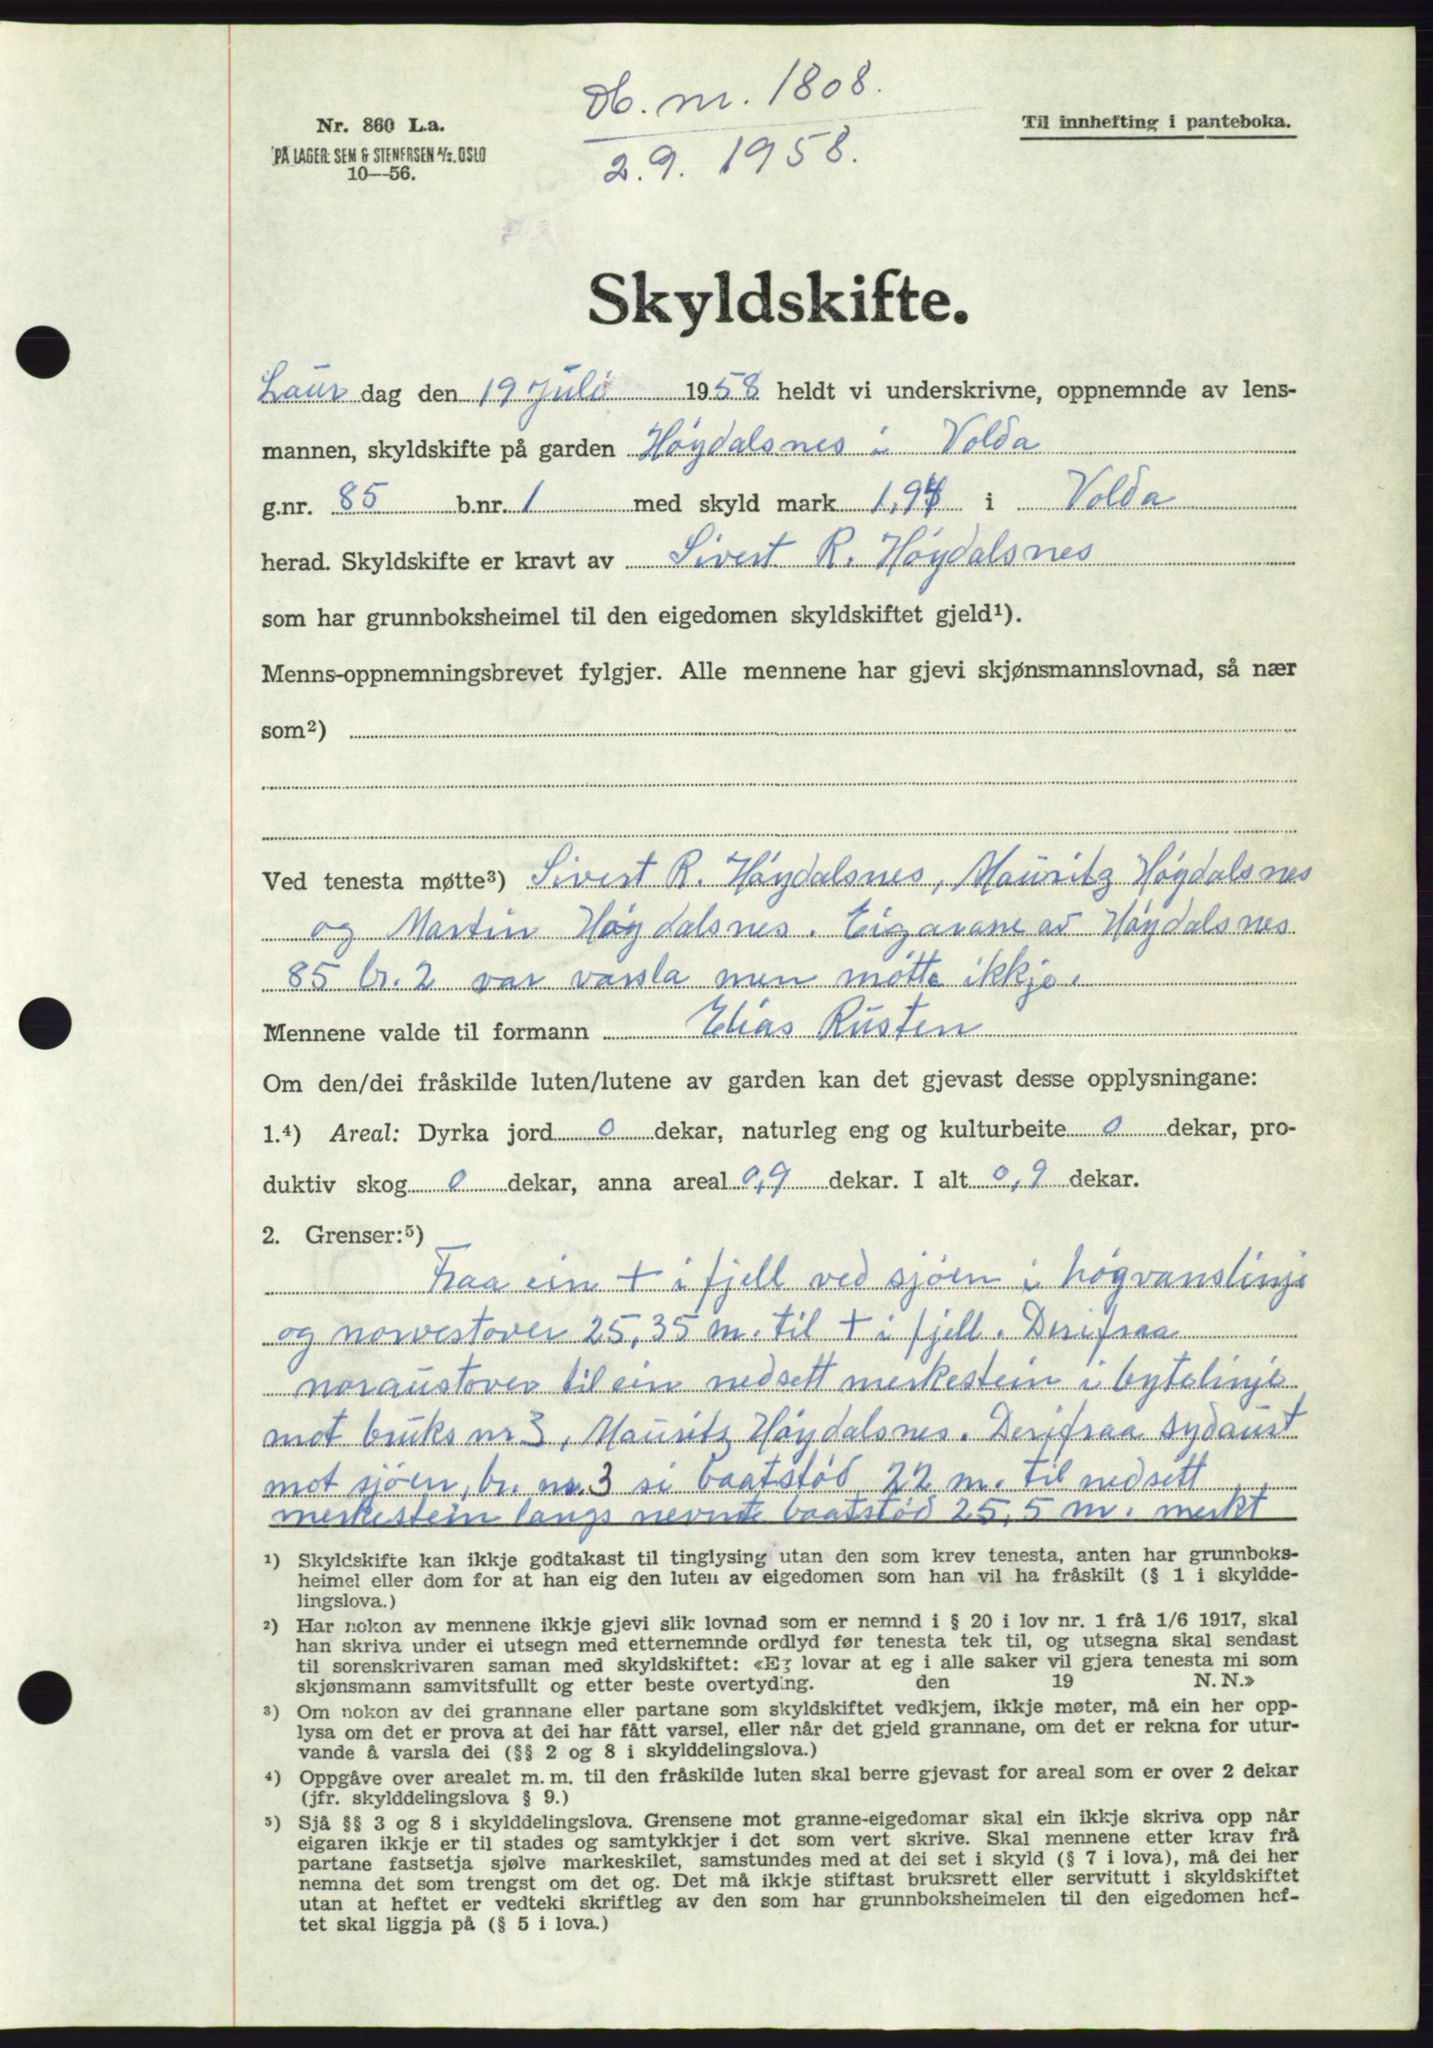 Db. nr. 1808.
2.9. 1958.
Nr. 860 L.a.
PÅ LAGER: SEM & STENERSEN A/S. OSLO
10—56.
Til innhefting i panteboka.
Skyldskifte.
Laur dag den 19 Juli 1958 heldt vi underskrivne, oppnemnde av lens-
mannen, skyldskifte på garden Høydalsnes i Volda
g.nr. 85 b.nr. 1 med skyld mark 1,94 i Volda
herad. Skyldskifte er kravt av Sivert R. Høydalsnes
som har grunnboksheimel til den eigedomen skyldskiftet gjeld¹).
Menns-oppnemningsbrevet fylgjer. Alle mennene har gjevi skjønsmannslovnad, så nær
som²)
Ved tenesta møtte³) Sivert R. Høydalsnes, Mauritz Høydalsnes
og Martin Høydalsnes. Eigarane av Høydalsnes
85 br. 2 var varsla men møtte ikkje.
Mennene valde til formann Elias Rusten
Om den/dei fråskilde luten/lutene av garden kan det gjevast desse opplysningane:
1.⁴) Areal: Dyrka jord 0 dekar, naturleg eng og kulturbeite 0 dekar, pro-
duktiv skog 0 dekar, anna areal 0,9 dekar. I alt 0,9 dekar.
2. Grenser:⁵)
Fraa ein + i fjell ved sjøen i høgvanslinje
og norvestover 25,35 m. til + i fjell. Derifraa
noraustover til ein nedsett merkestein i bytelinje
mot bruks nr 3, Mauritz Høydalsnes. Derifraa sydaust
mot sjøen, br. nr. 3 si baatstød 22 m. til nedsett
merkestein langs nevnte baatstød 25,5 m. merkt
¹) Skyldskifte kan ikkje godtakast til tinglysing utan den som krev tenesta, anten har grunnboks-
heimel eller dom for at han eig den luten av eigedomen som han vil ha fråskilt (§ 1 i skyldde-
lingslova.)
²) Har nokon av mennene ikkje gjevi slik lovnad som er nemnd i § 20 i lov nr. 1 frå 1/6 1917, skal
han skriva under ei utsegn med etternemnde ordlyd før tenesta tek til, og utsegna skal sendast
til sorenskrivaren saman med skyldskiftet: «Eg lovar at eg i alle saker vil gjera tenesta mi som
skjønsmann samvitsfullt og etter beste overtyding. den 19 N. N.»
³) Om nokon av dei grannane eller partane som skyldskiftet vedkjem, ikkje møter, må ein her opp-
lysa om det er prova at dei har fått varsel, eller når det gjeld grannane, om det er rekna for utur-
vande å varsla dei (§§ 2 og 8 i skylddelingslova.)
⁴) Oppgåve over arealet m. m. til den fråskilde luten skal berre gjevast for areal som er over 2 dekar
(jfr. skylddelingslova § 9.)
⁵) Sjå §§ 3 og 8 i skylddelingslova. Grensene mot granne-eigedomar skal ein ikkje skriva opp når
eigaren ikkje er til stades og samtykkjer i det som vert skrive. Skal mennene etter krav frå
partane fastsetja sjølve markeskilet, samstundes med at dei set i skyld (§ 7 i lova), må dei her
nemna det som trengst om det og. Det må ikkje stiftast bruksrett eller servitutt i skyldskiftet
utan at heftet er vedteki skriftleg av den som har grunnboksheimelen til den eigedomen hef-
tet skal liggja på (§ 5 i lova.)